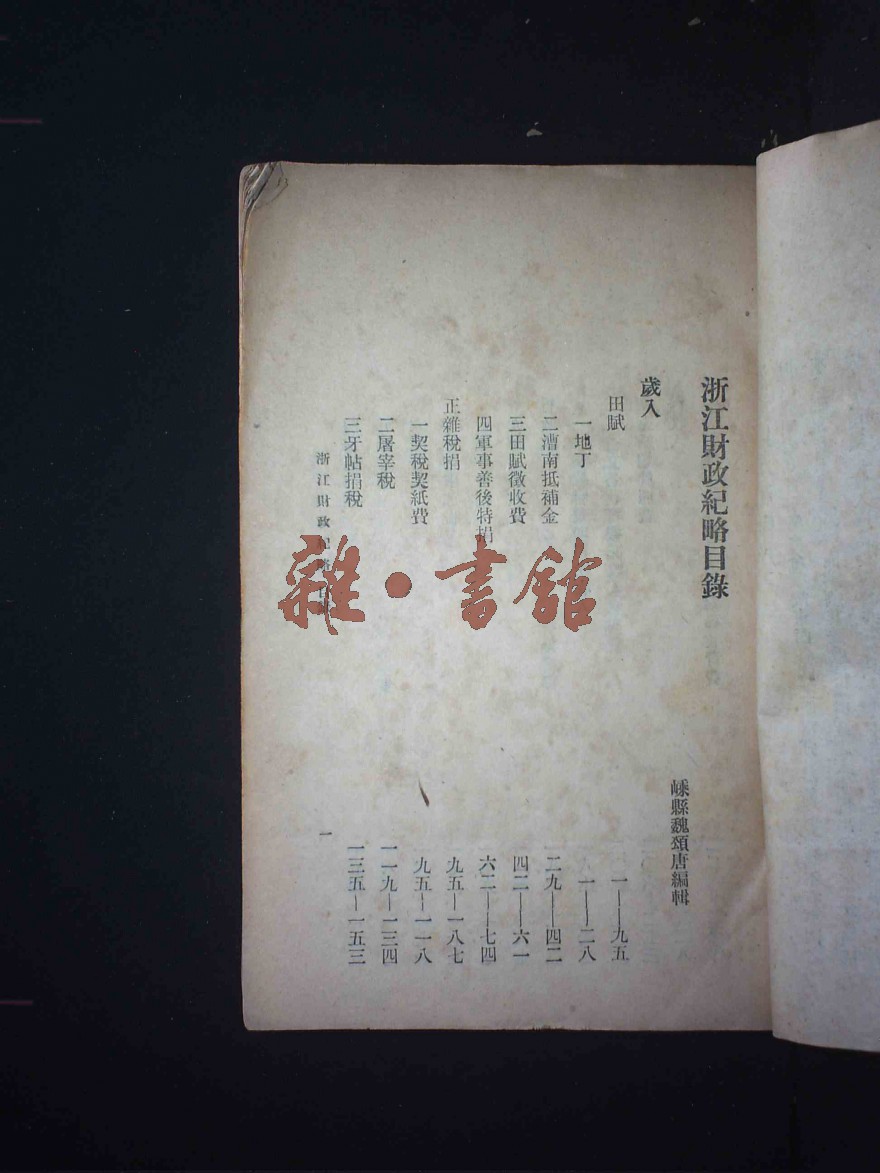 浙江財政紀略目錄
嵊縣魏頌唐編輯
歲入
田賦 一——九五
一地丁 一——二八
二漕南抵補金 二九——四二
三田賦徵收費 四二——六一
四軍事善後特捐 六二——七四
正雜稅捐 九五—一八七
一契稅契紙費 九五—一一八
二屠宰稅 一一九—一三四
三牙帖捐稅 一三五—一五三
浙江財政紀略 一
雜·書館